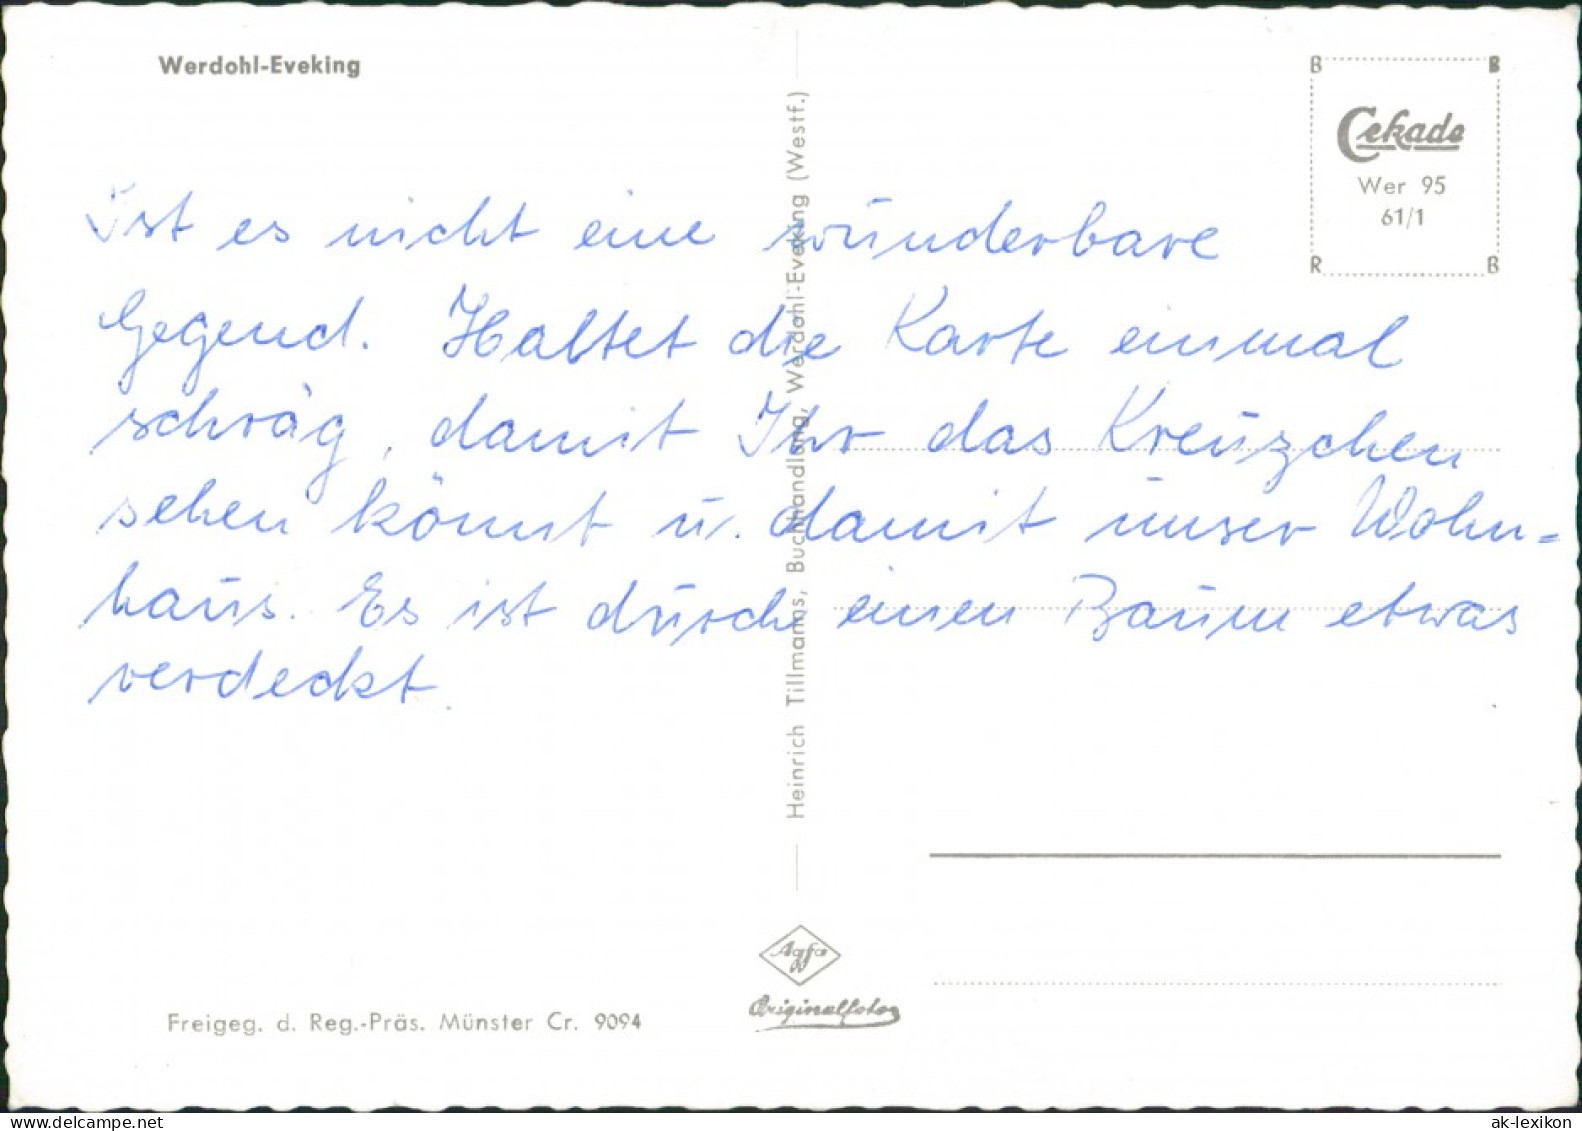 Werdohl-Eveking
B B
Cekade
Wer 95
61/1
R B
Ist es nicht eine wunderbare
Gegend. Haltet die Karte einmal
schräg, damit Ihr das Kreuzchen
sehen könnt u. damit unser Wohn=
haus. Es ist durch einen Baum etwas
verdeckt.
Heinrich Tillmanns, Buchhandlung, Werdohl-Eveking (Westf.)
Agfa
Originalfoto
Freigeg. d. Reg.-Präs. Münster Cr. 9094
delcampe.net
ak-lexikon